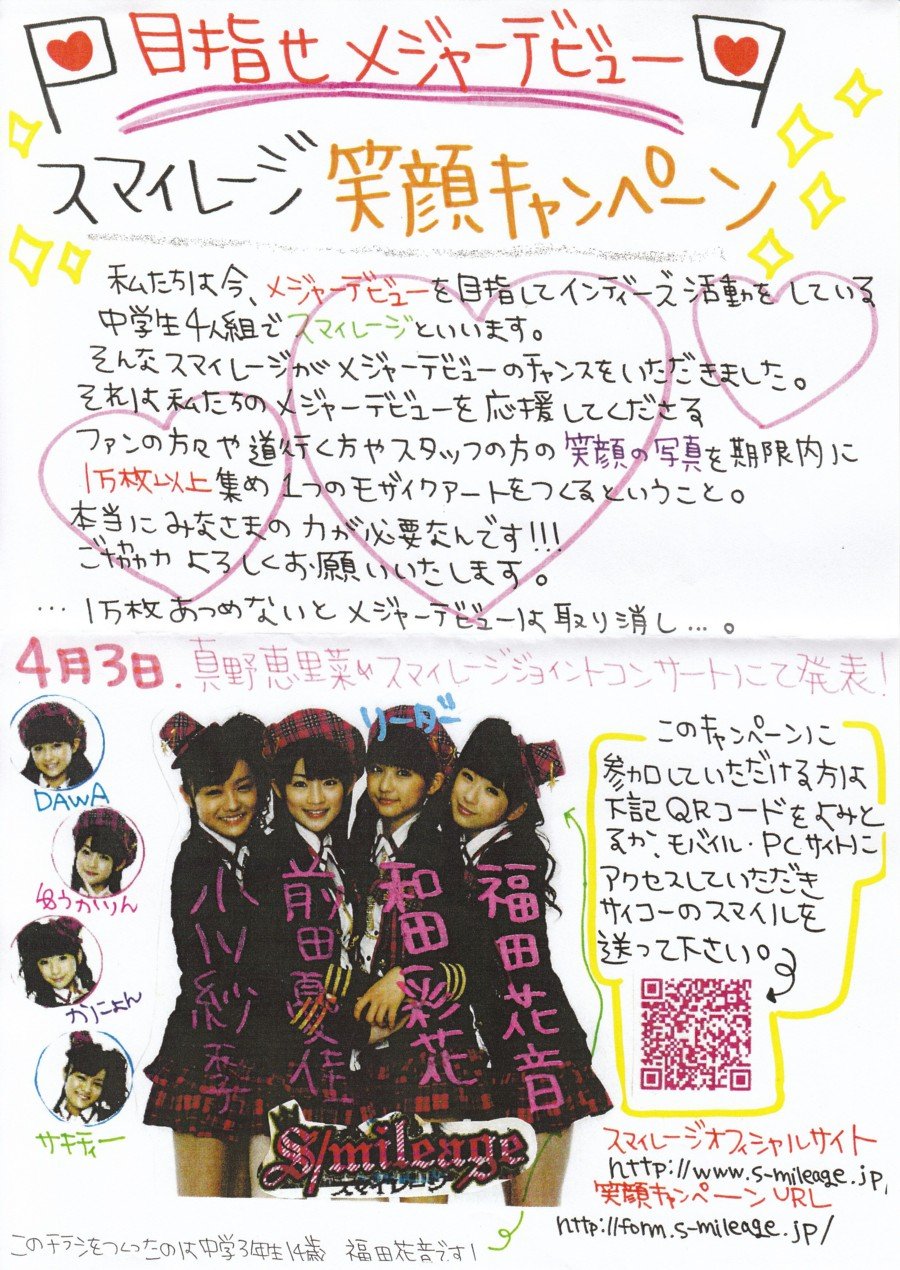 目指せメジャーデビュー
スマイレージ 笑顔キャンペーン
私たちは今、メジャーデビューを目指してインディーズ活動をしている
中学生4人組でスマイレージといいます。
そんなスマイレージがメジャーデビューのチャンスをいただきました。
それは私たちのメジャーデビューを応援してくださる
ファンの方々や道行く方やスタッフの方の笑顔の写真を期限内に
1万枚以上集め1つのモザイクアートをつくるということ。
本当にみなさまの力が必要なんです!!!
ご協力よろしくお願いいたします。
…1万枚あつめないとメジャーデビューは取り消し…。
4月3日.真野恵里菜&スマイレージジョイントコンサートにて発表!
DAWA
ゆうかりん
かにょん
サキチィー
リーダー
小川紗季
前田憂佳
和田彩花
福田花音
S/mileage
スマイレージ
このキャンペーンに
参加していただける方は
下記QRコードをよみと
るか、モバイル・PCサイトに
アクセスしていただき
サイコーのスマイルを
送って下さい。
スマイレージオフィシャルサイト
http://www.s-mileage.jp/
笑顔キャンペーンURL
http://form.s-mileage.jp/
このチラシをつくったのは中学3年生14歳 福田花音です!